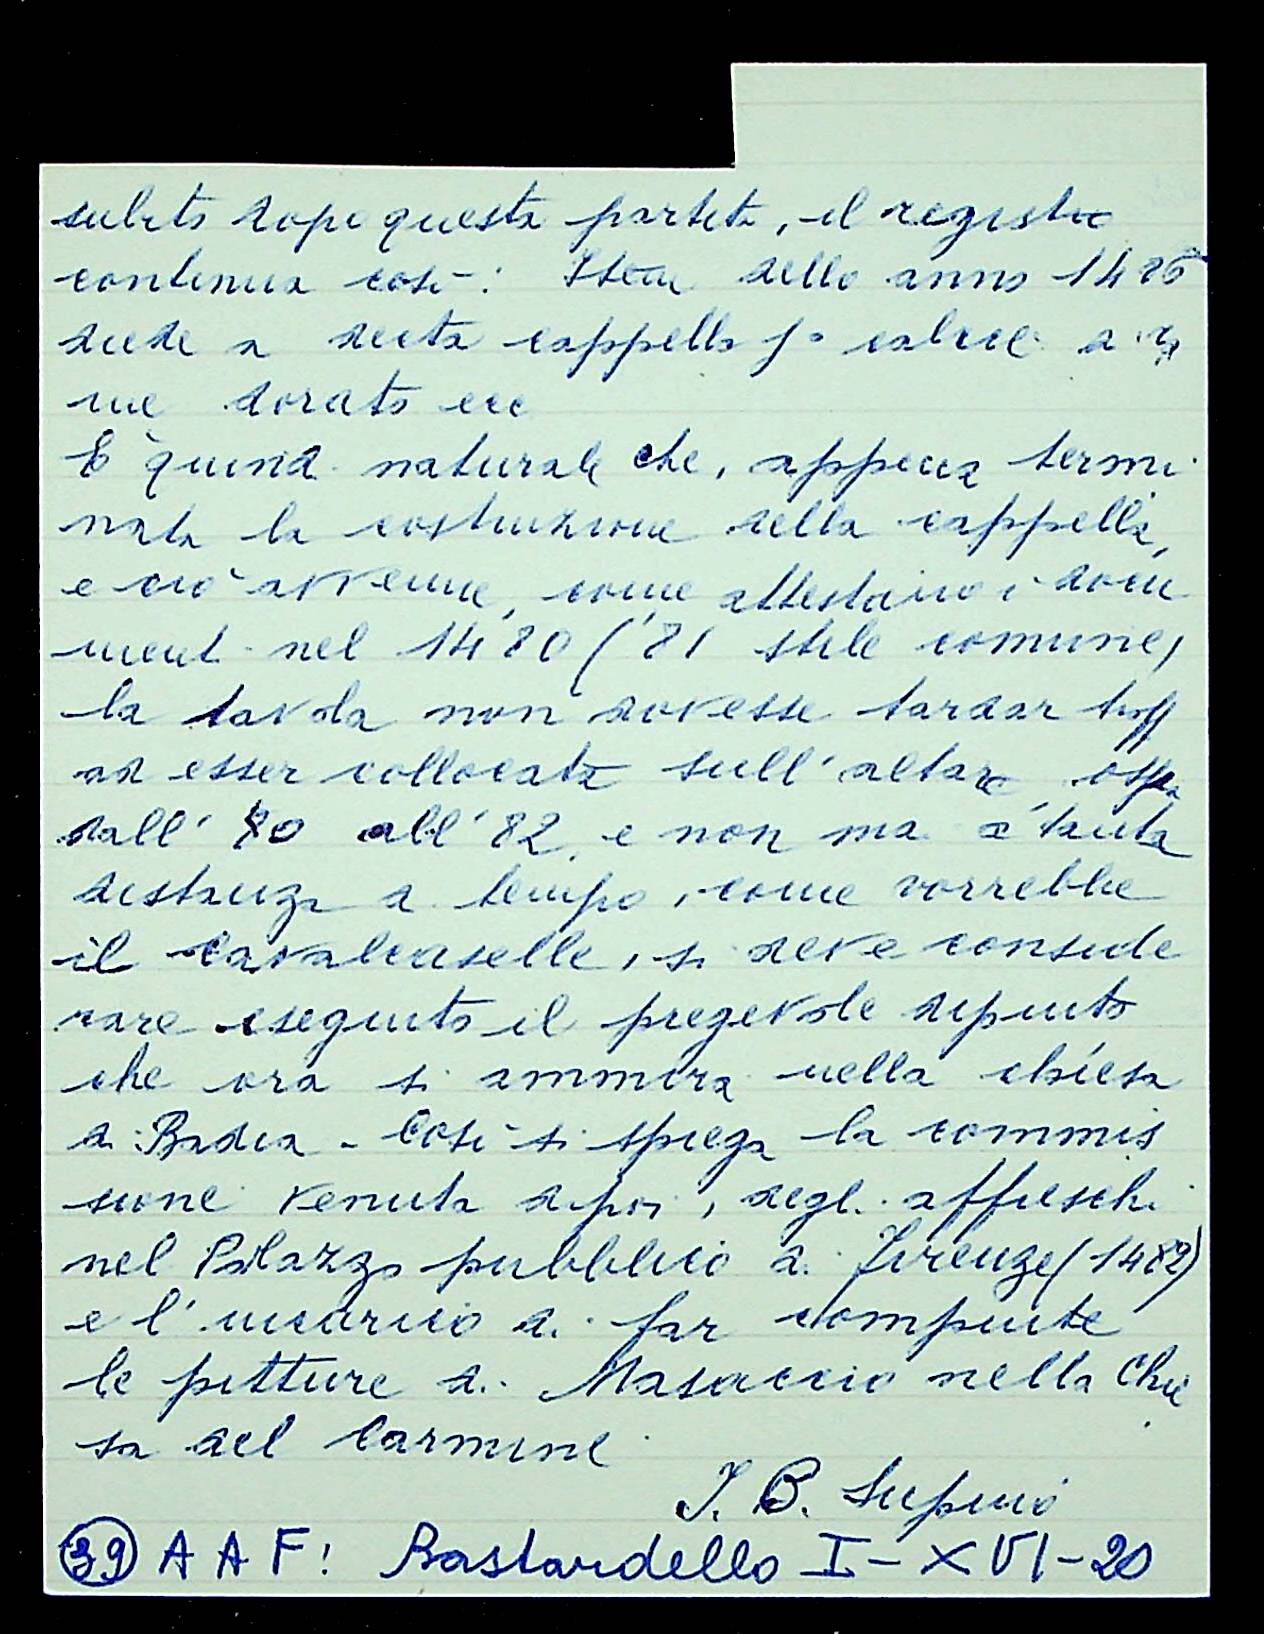 subito dopo questa partita, il registro
continua così: Item dello anno 1486
diede a decta cappella jo calice di ra
me dorato ecc
È quindi naturale che, appena termi
nata la costruzione della cappella,
e ciò avvenne, come attestano i docu
menti nel 1480 ('81 stile comune)
la tavola non dovesse tardar
ad esser collocata sull'altare,
dall' 80 all' '82, e non ma a tanta
distanza di tempo, come vorrebbe
il Cavalcaselle, si deve conside
rare eseguito il pregevole dipinto
che ora si ammira nella chiesa
di Badia - Così si spiega la commis
sione venuta dipoi, degli affreschi
nel Palazzo pubblico di Firenze (1482)
e l'incarico di far compiute
le pitture di Masaccio nella Chie
sa del Carmine
I. B. Supino
39 A A F: Bastardello I - XVI - 20